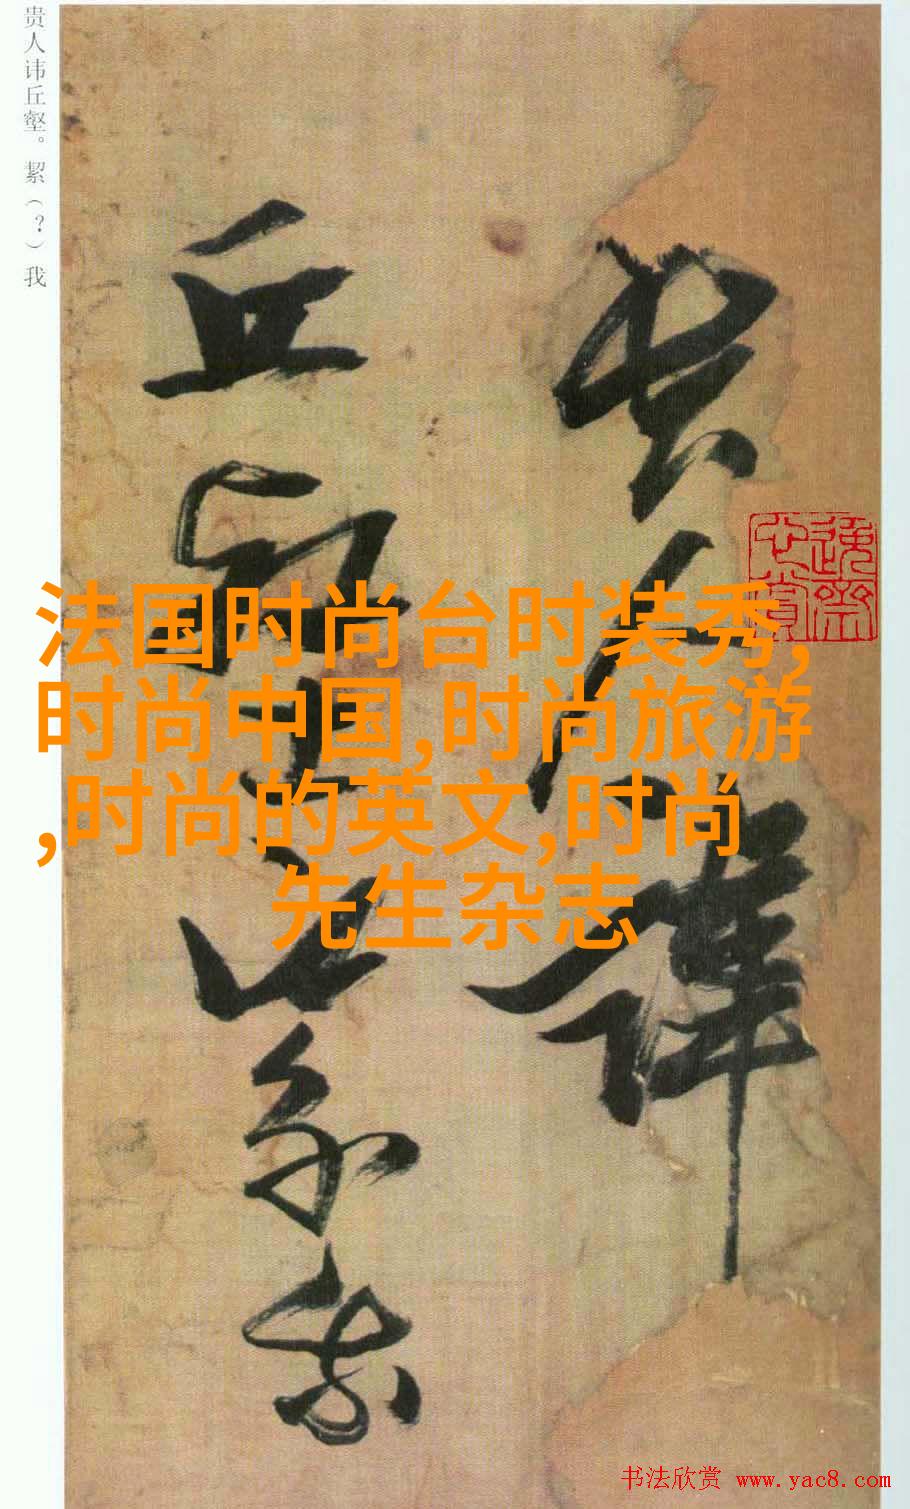 贵人讳丘壑。絜（？）我
贵人讳
丘壑
絜我
法国时尚台时装秀,
时尚中国,时尚旅游
,时尚的英文,时尚
先生杂志
书法欣赏 www.yac8.com